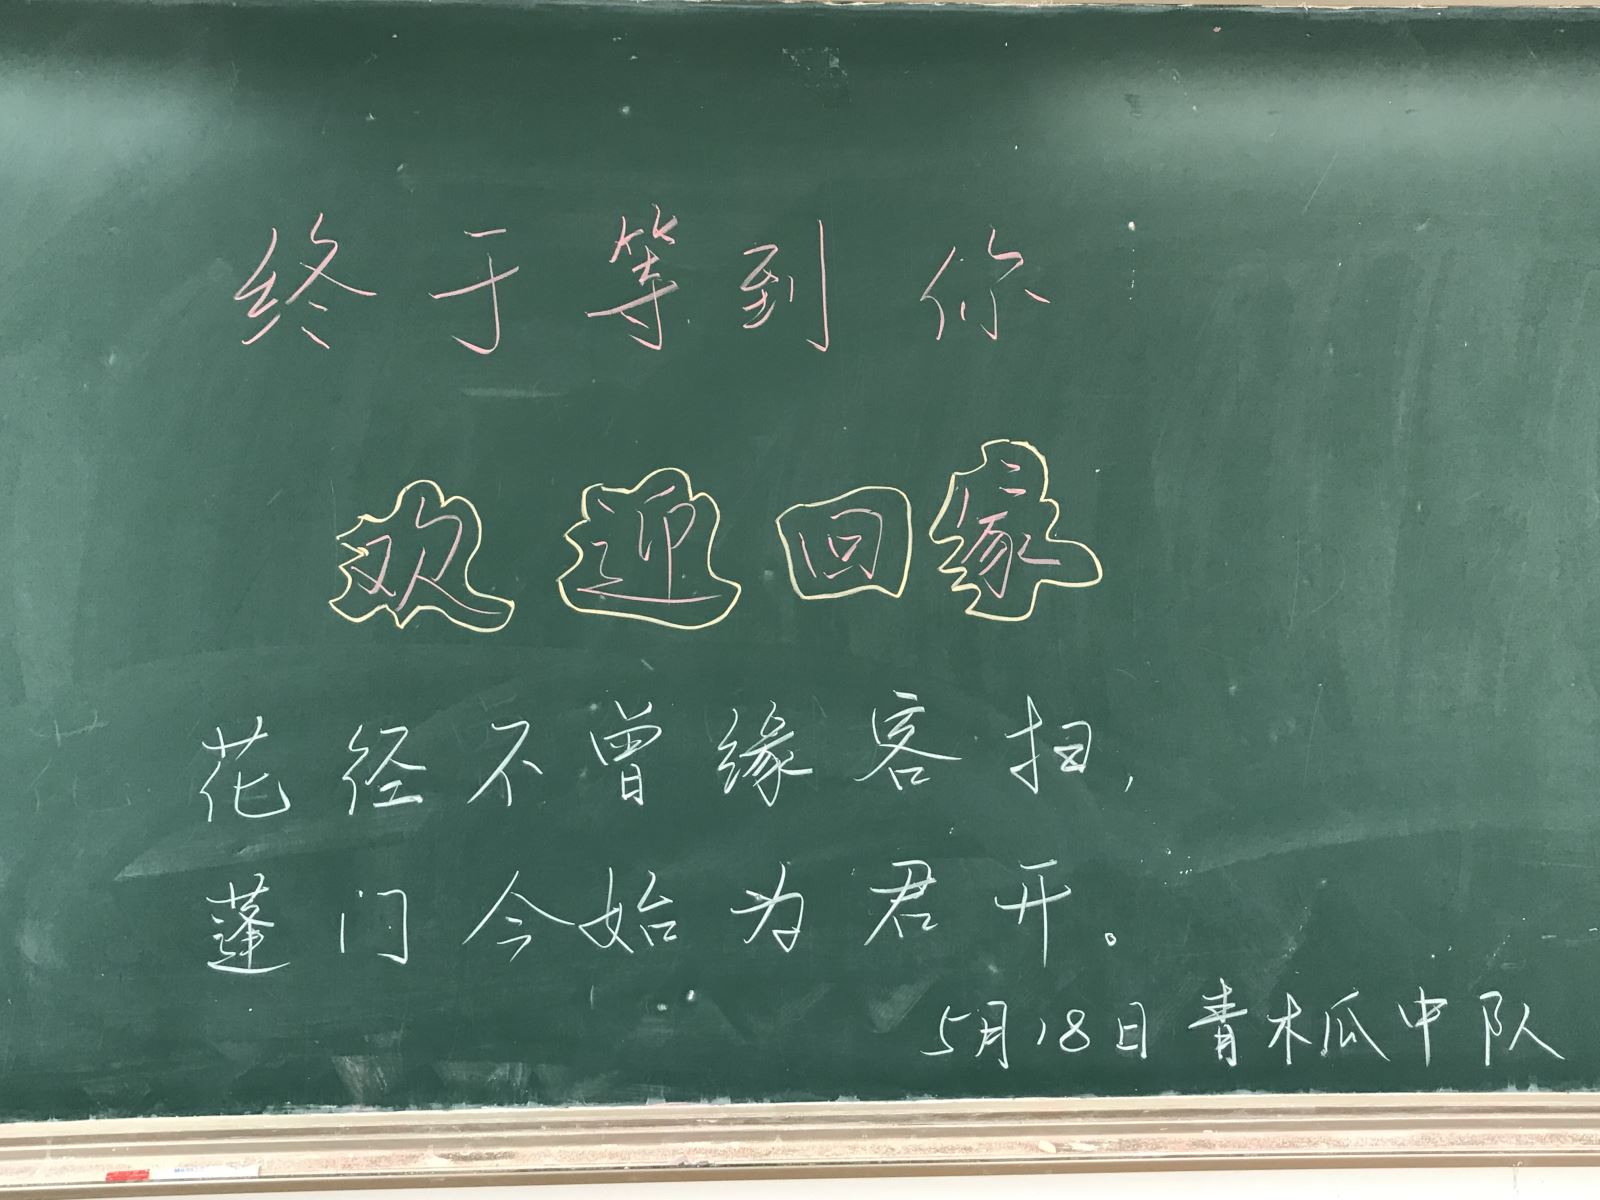 终于等到你
欢迎回家
花径不曾缘客扫,
蓬门今始为君开。
5月18日 青木瓜中队